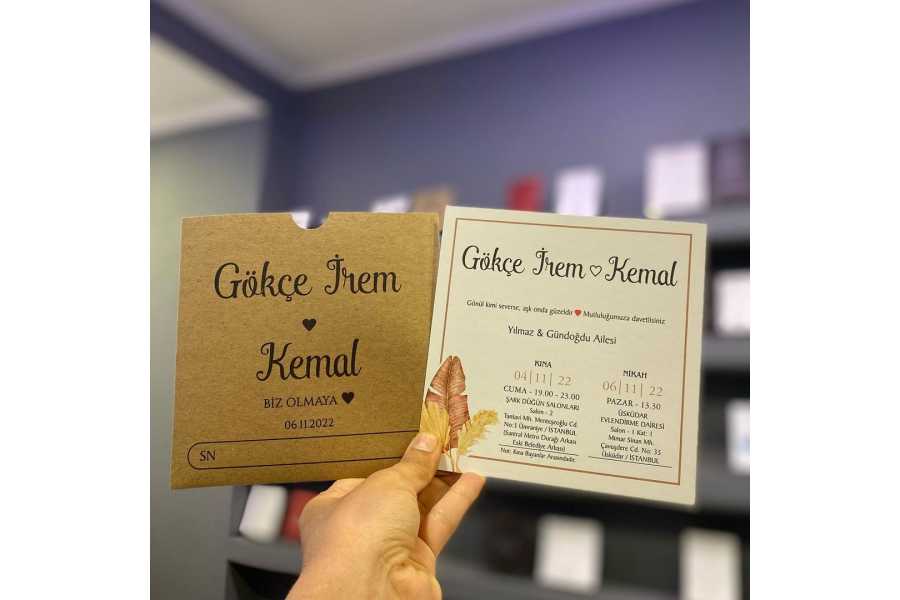 Gökçe İrem
Kemal
BİZ OLMAYA
06.11.2022
SN
Gökçe İrem Kemal
Gönül kimi severse, aşk onda güzeldir Mutluluğumuza davetlisiniz
Yılmaz & Gündoğdu Ailesi
KINA
04|11| 22
CUMA - 19.00 - 23.00
ŞARK DÜĞÜN SALONLARI
Salon - 2
Tantavi Mh. Menteşoğlu Cd.
No:1 Ümraniye / İSTANBUL
(Santral Metro Durağı Arkası
Eski Belediye Arkası)
Not: Kına Bayanlar Arasındadır.
NİKAH
06|11| 22
PAZAR - 13.30
ÜSKÜDAR
EVLENDİRME DAİRESİ
Salon - 1 Kat: 1
Mimar Sinan Mh.
Çavuşdere Cd. No: 35
Üsküdar / İSTANBUL